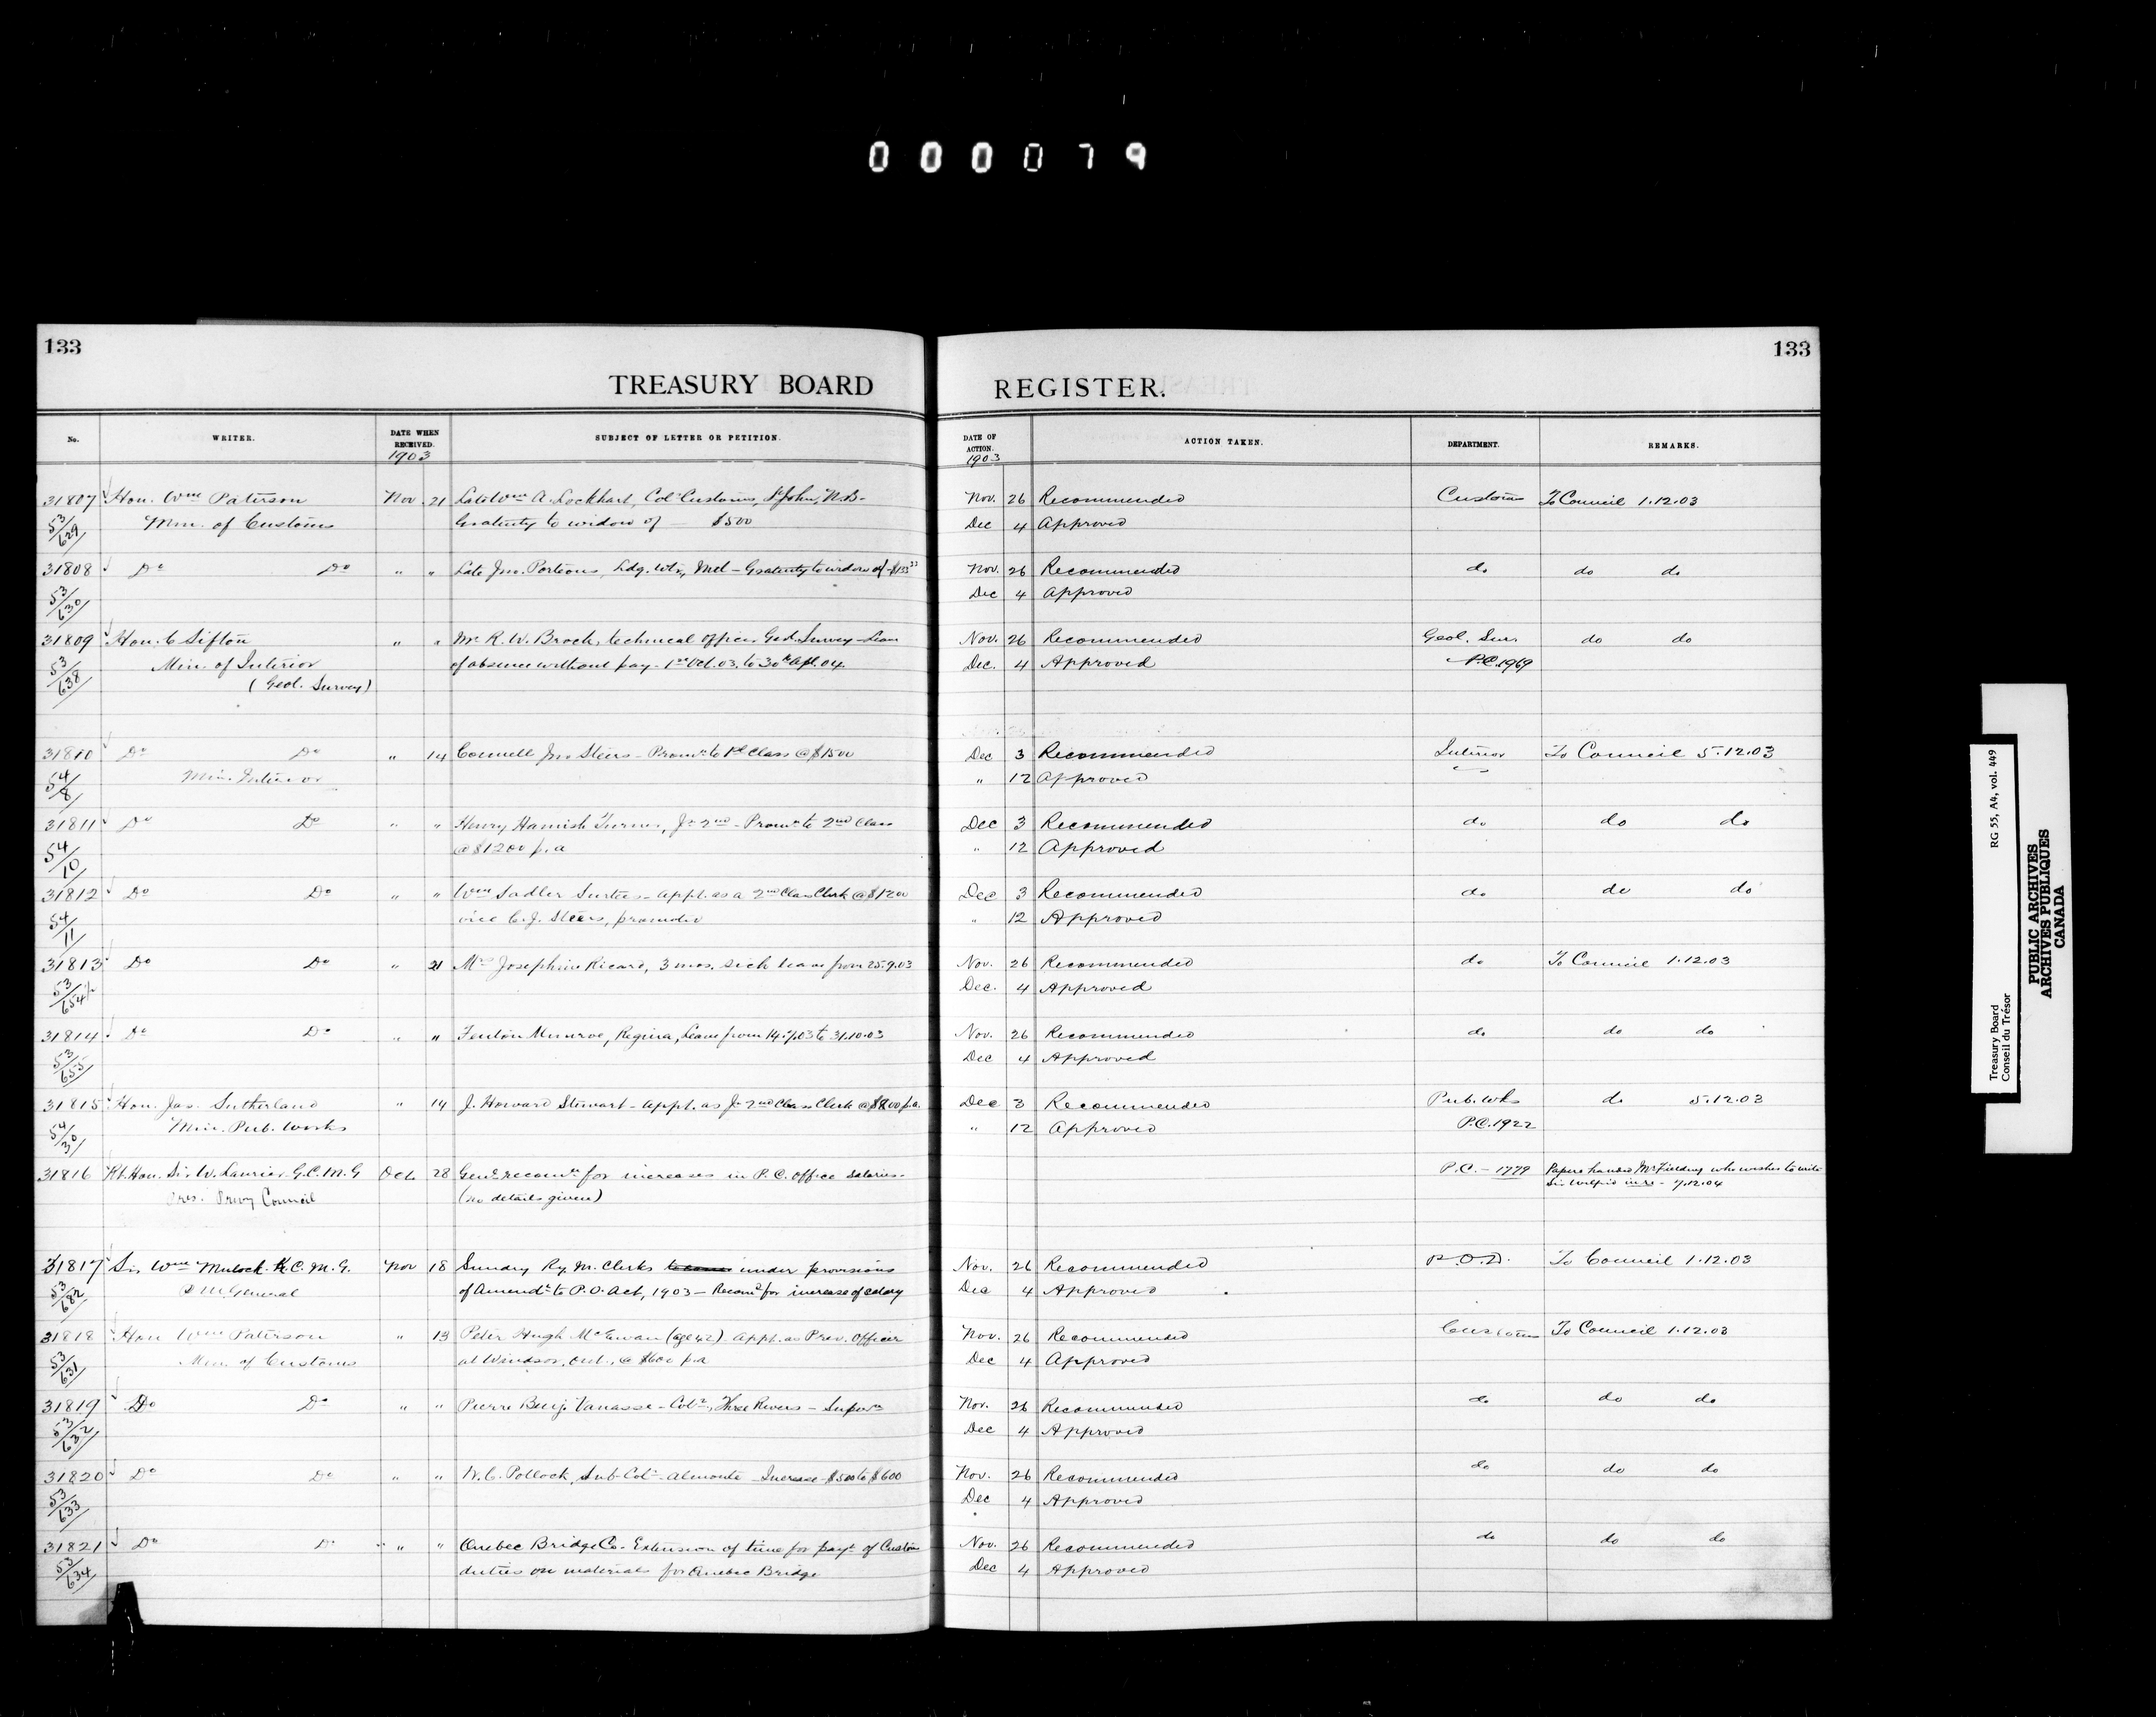 000079
133
133
TREASURY BOARD REGISTER.
No. WRITER. DATE WHEN RECEIVED. SUBJECT OF LETTER OR PETITION. DATE OF ACTION. ACTION TAKEN. DEPARTMENT. REMARKS.
1903 1903
31807 Hon. Wm Paterson Nov. 21 Late Wm A. Lockhart, Colr Customs, St John, N.B. Nov. 26 Recommended Customs To Council 1.12.03
53/629 Min. of Customs Gratuity to widow of — $500 Dec 4 Approved
31808 Do Do " " Late Jno. Porteous, Ldg. Wtr, Mtl – Gratuity to widow of – Nov. 26 Recommended do do do
53/630 Dec 4 Approved
31809 Hon. C Sifton " " Mr R. W. Brock, technical officer Geol. Survey – Leave Nov. 26 Recommended Geol. Sur. do do
53/638 Min. of Interior of absence without pay – 1st Oct. 03, to 30th Apl. 04 Dec. 4 Approved P.C. 1969
(Geol. Survey)
31810 Do Do " 14 Connell Jno Steers – Promn to 1st Class @ $1500 Dec 3 Recommended Interior To Council 5.12.03
54/8 Min. Interior " 12 Approved
31811 Do Do " " Henry Hamish Turner, Jr 2nd – Promn to 2nd Class Dec 3 Recommended do do do
54/10 @ $1200 p.a " 12 Approved
31812 Do Do " " Wm Sadler Surtees – Appt. as a 2nd Class Clerk @ $1200 Dec 3 Recommended do do do
54/11 vice C. J. Steers, promoted " 12 Approved
31813 Do Do " 21 Mrs Josephine Ricard, 3 mos. sick leave from 25.9.03 Nov. 26 Recommended do To Council 1.12.03
53/654½ Dec. 4 Approved
31814 Do Do " " Fenton Munroe, Regina, Leave from 14.7.03 to 31.10.03 Nov. 26 Recommended do do do
53/655 Dec 4 Approved
31815 Hon. Jas. Sutherland " 14 J. Howard Stewart – Appt. as Jr 2nd Class Clerk @ $800 p.a. Dec 3 Recommended Pub. Wks do 5.12.03
54/30 Min. Pub. Works " 12 Approved P.C. 1922
31816 Rt. Hon. Sir W. Laurier G.C.M.G Oct. 28 Genl recomn for increases in P.C. Office Salaries – P.C. – 1779 Papers handed Mr Fielding who wishes to write
Pres. Privy Council (no details given) Sir Wilfrid in re – 7.12.04
31817 Sir Wm Mulock K.C.M.G. Nov 18 Sundry Ry. M. Clerks under provisions Nov. 26 Recommended P.O.D. To Council 1.12.03
53/682 P M General of Amendt to P.O. Act, 1903 – Recomd for increase of salary Dec 4 Approved
31818 Hon Wm Paterson " 13 Peter Hugh McEwan (age 42) Appt. as Prev. Officer Nov. 26 Recommended Customs To Council 1.12.03
53/631 Min. of Customs at Windsor, Ont., @ $600 p.a Dec 4 Approved
31819 Do Do " " Pierre Benj. Vanasse – Colr, Three Rivers – Nov. 26 Recommended do do do
53/632 Dec 4 Approved
31820 Do Do " " W. C. Pollock, Sub-Colr – Almonte – Increase $500 to $600 Nov. 26 Recommended do do do
53/633 Dec 4 Approved
31821 Do Do " " Quebec Bridge Co – Extension of time for payt of Customs Nov. 26 Recommended do do do
53/634 duties on materials for Quebec Bridge Dec 4 Approved
Treasury Board RG 55, A4, vol. 449
Conseil du Trésor
PUBLIC ARCHIVES
ARCHIVES PUBLIQUES
CANADA